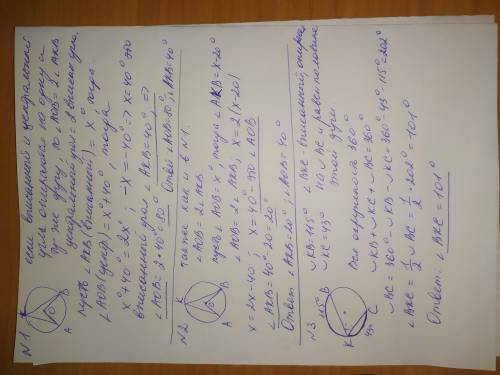 N1 если вписанный и центральный
угла опираются на одну и
ту же дугу, то ∠AOB = 2∠AKB
центральный угол = 2 вписан. угла.
пусть ∠AKB (вписанный) = x° тогда
∠AOB (центр) = x°+40°, тогда
x°+40° = 2x°; -x = -40° => x = 40° это
вписанный угол ∠AKB = 40° =>
∠AOB = 2 * 40° = 80°
Ответ ∠AOB = 80°; ∠AKB = 40°
K
O
A
B
N2 также как и в N1.
∠AOB = 2∠AKB
пусть ∠AOB = x°, тогда ∠AKB = x-20°
∠AOB = 2∠AKB; x = 2(x-20)
x = 2x-40; x = 40° это ∠AOB
∠AKB = 40°-20 = 20°
Ответ ∠AKB = 20°; ∠AOB = 40°
K
O
A
B
N3 ◡KB = 115° ∠BKC - вписанный, опирает
◡KC = 43° на ◡BC и равен половине
этой дуги.
Вся окружность 360°
◡KB + ◡KC + ◡BC = 360°
◡BC = 360° - ◡KB - ◡KC = 360° - 43° - 115° = 202°
∠BKC = 1/2 ◡BC = 1/2 · 202° = 101°
Ответ: ∠BKC = 101°
115°
B
K
43°
C